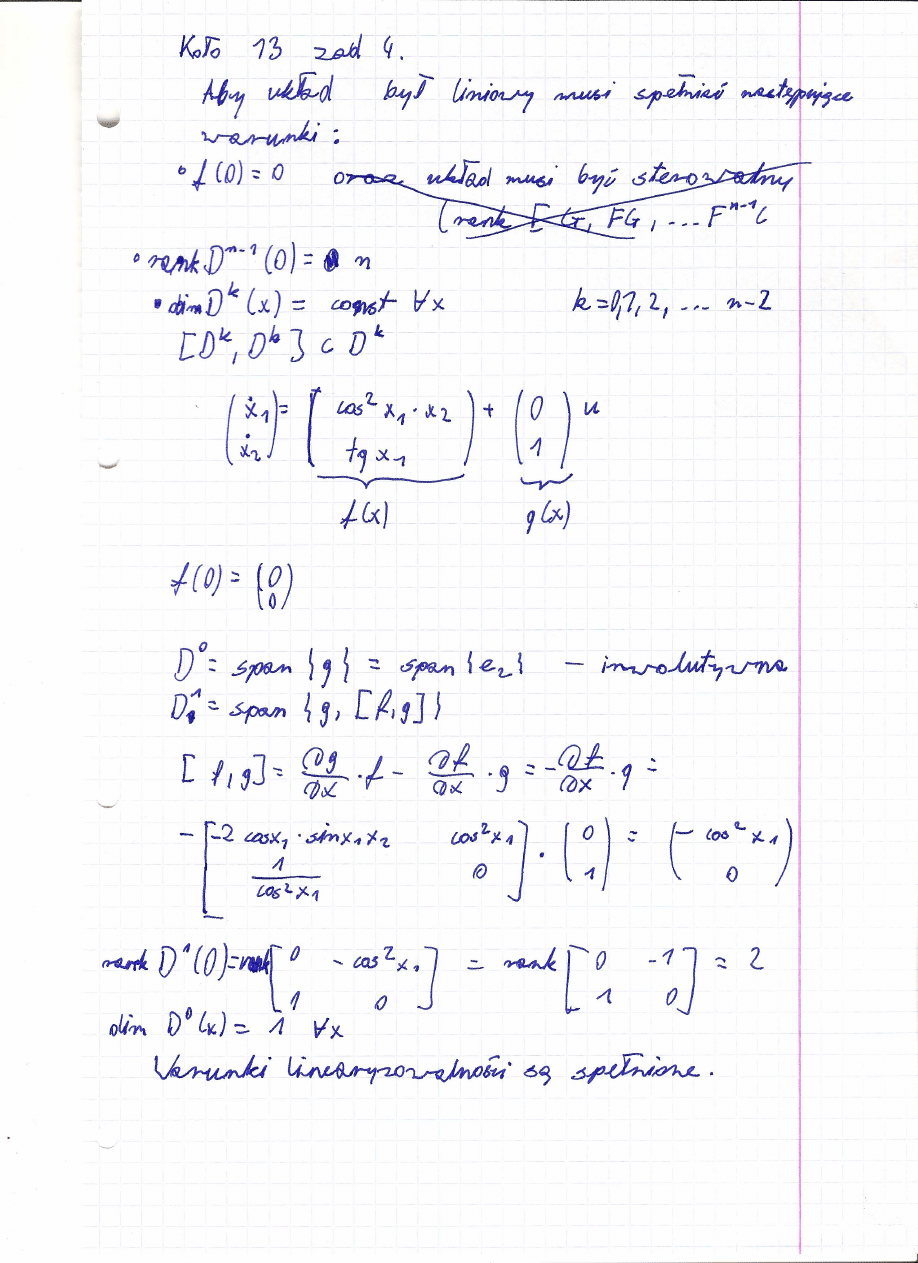 Koło 13 zad 4.
Aby układ był liniowy musi spełniać następujące
warunki:
• f(0) = 0 oraz układ musi być sterowalny
(rank [ G, FG, ... F^{n-1}G
• rank D^{n-1}(0) = n
• dim D^k(x) = const ∀x k = 0,1,2, ... n-2
[D^k, D^k] ⊂ D^k
(ẋ_1 ẋ_2) = [cos² x_1 · x_2 tg x_1] + (0 1) u
f(x) g(x)
f(0) = (0 0)
D^0 = span {g} = span {e_2} – inwolutywna
D^1 = span {g, [f,g]}
[f,g] = ∂g/∂x · f - ∂f/∂x · g = -∂f/∂x · g =
- [-2 cosx_1 · sinx_1 x_2 cos²x_1 1/cos²x_1 0] · (0 1) = (- cos² x_1 0)
rank D^1(0) = rank [0 - cos² x_1 1 0] = rank [0 -1 1 0] = 2
dim D^0(x) = 1 ∀x
Warunki linearyzowalności są spełnione.